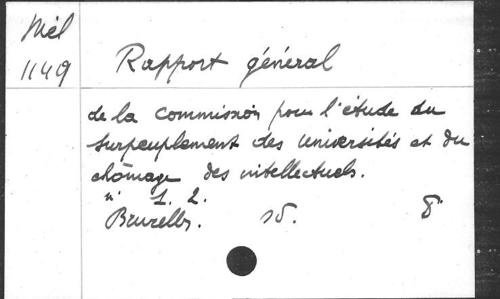 Mél
1149
Rapport général
de la Commission pour l'étude du
surpeuplement des Universités et du
chômage des intellectuels.
n° 1. 2.
Bruxelles. sd. 8°